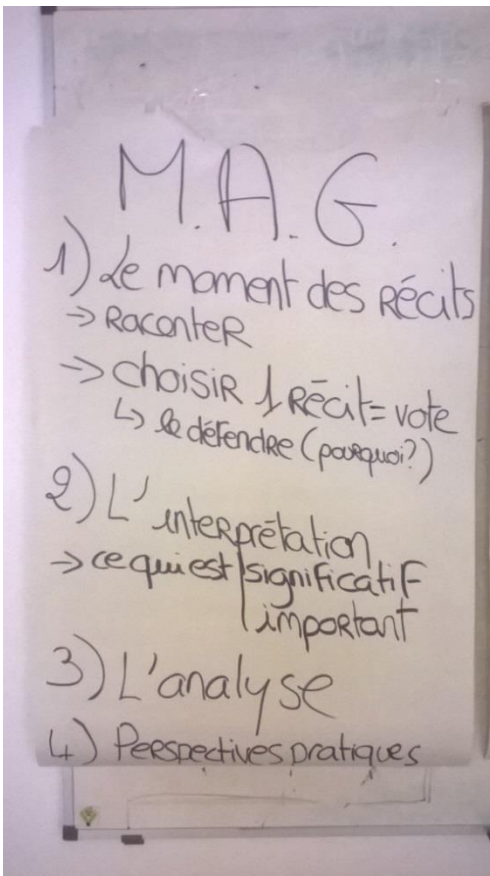 M.A.G.
1) Le moment des Récits
→ RaconteR
→ choisiR 1 Récit = vote
↳ le défendRe (pourquoi?)
2) L'interprétation
→ ce qui est significatif
important
3) L'analyse
4) Perspectives pratiques